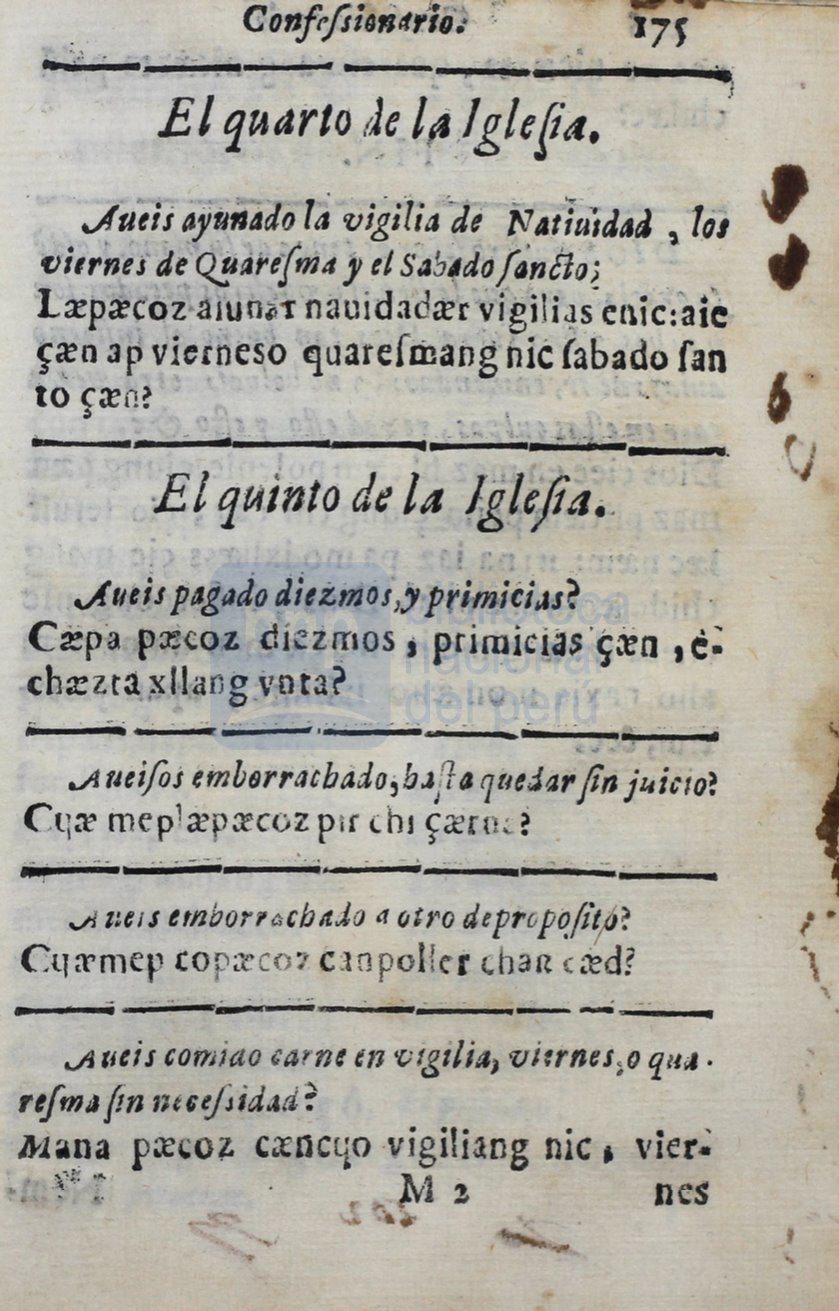 Confeſsionario. 175
El quarto de la Igleſia.
Aueis ayunado la vigilia de Natiuidad, los
viernes de Quareſma y el Sabado ſancto;
Læpæcoz aiunar nauidadær vigilias enic:aie
çæn ap vierneso quareſmang nic ſabado ſan
to çæn?
El quinto de la Igleſia.
Aueis pagado diezmos, y primicias?
Cæpa pæcoz diezmos, primicias çæn, è-
chæzta xllang vnta?
Aueiſos emborrachado, haſta quedar ſin juicio?
Cɥæ meplæpæcoz pir chi
Aueis emborrachado a otro depropoſito?
Cɥæmep copæcoz canpoller chan cæd?
Aueis comido carne en vigilia, viernes, o qua-
reſma ſin neceſsidad?
Mana pæcoz cæncɥo vigiliang nic, vier-
M 2 nes
biblioteca
nacional
del perú